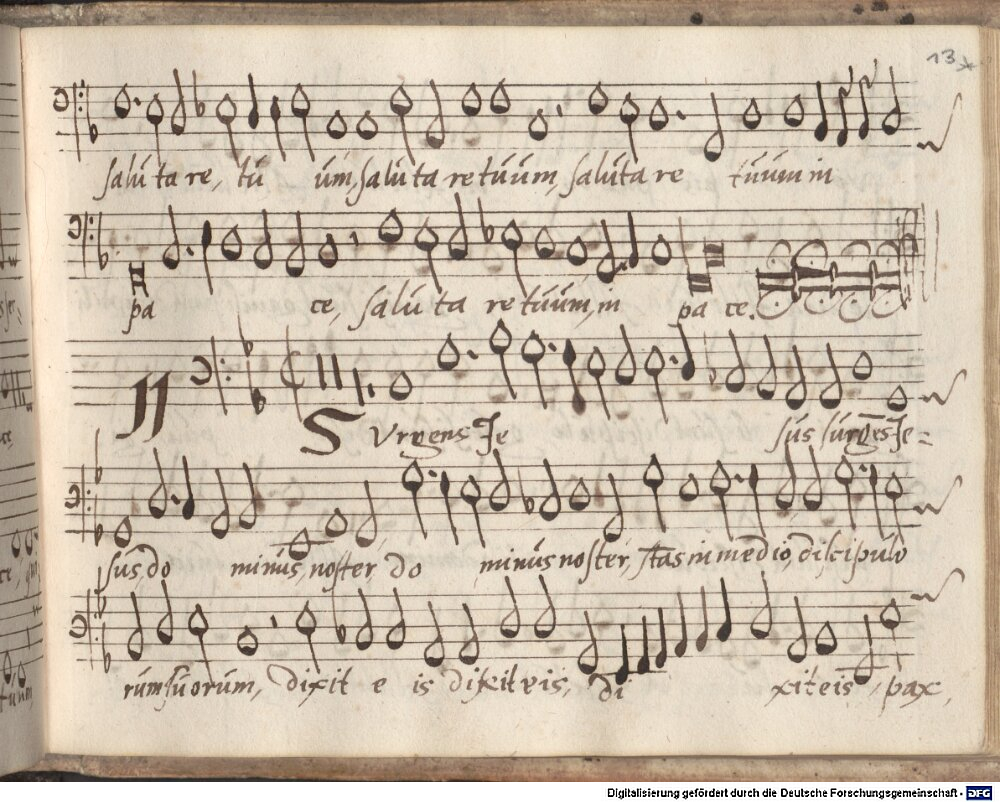 13
salu ta re, tu um, saluta re tuum, saluta re tuum in
pa ce, salu ta re tuum, in pa ce.
II
Surgens Je sus surges Je-
sus, do minus, noster, do minus noster, stas in medio, discipulo
rum suorum, dixit e is dixit eis, di xit eis, pax,
Digitalisierung gefördert durch die Deutsche Forschungsgemeinschaft - DFG